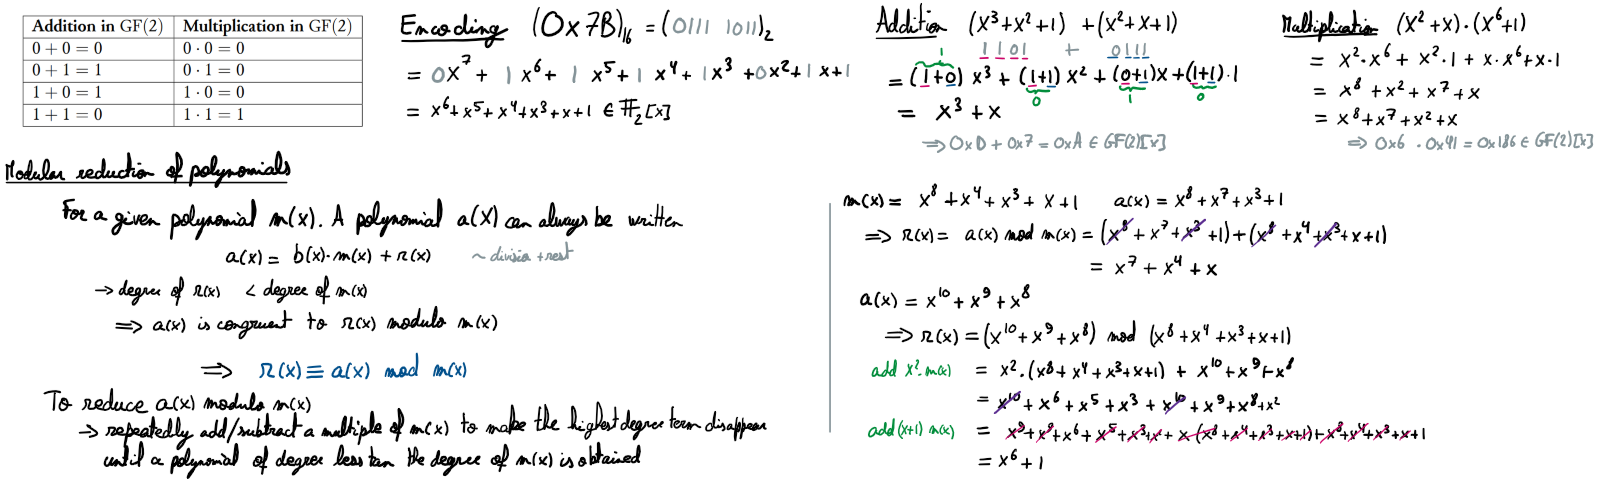 Addition in GF(2) Multiplication in GF(2)
0 + 0 = 0 0 · 0 = 0
0 + 1 = 1 0 · 1 = 0
1 + 0 = 1 1 · 0 = 0
1 + 1 = 0 1 · 1 = 1
Encoding (0x7B)₁₆ = (0111 1011)₂
= 0x⁷ + 1 x⁶ + 1 x⁵ + 1 x⁴ + 1x³ + 0x² + 1 x + 1
= x⁶ + x⁵ + x⁴ + x³ + x + 1 ∈ 𝔽₂[x]
Addition (x³+x²+1) + (x²+x+1)
1101 + 0111
1
= (1+0) x³ + (1+1) x² + (0+1)x + (1+1)·1
0 1 0
= x³ + x
⇒ 0xD + 0x7 = 0xA ∈ GF(2)[x]
Multiplication (x²+x)·(x⁶+1)
= x²·x⁶ + x²·1 + x·x⁶ + x·1
= x⁸ + x² + x⁷ + x
= x⁸ + x⁷ + x² + x
⇒ 0x6 · 0x41 = 0x186 ∈ GF(2)[x]
Modular reduction of polynomials
For a given polynomial m(x). A polynomial a(x) can always be written
a(x) = b(x)·m(x) + r(x) ~ division + rest
→ degree of r(x) < degree of m(x)
⇒ a(x) is congruent to r(x) modulo m(x)
⇒ r(x) ≡ a(x) mod m(x)
To reduce a(x) modulo m(x)
→ repeatedly add/subtract a multiple of m(x) to make the highest degree term disappear
until a polynomial of degree less tan the degree of m(x) is obtained
m(x) = x⁸ + x⁴ + x³ + x + 1 a(x) = x⁸ + x⁷ + x³ + 1
⇒ r(x) = a(x) mod m(x) = (x⁸ + x⁷ + x³ + 1) + (x⁸ + x⁴ + x³ + x + 1)
= x⁷ + x⁴ + x
a(x) = x¹⁰ + x⁹ + x⁸
⇒ r(x) = (x¹⁰ + x⁹ + x⁸) mod (x⁸ + x⁴ + x³ + x + 1)
add x²·m(x) = x²·(x⁸ + x⁴ + x³ + x + 1) + x¹⁰ + x⁹ + x⁸
= x¹⁰ + x⁶ + x⁵ + x³ + x¹⁰ + x⁹ + x⁸ + x²
add (x+1) m(x) = x⁹ + x⁸ + x⁶ + x⁵ + x³ + x + x·(x⁸ + x⁴ + x³ + x + 1) + x⁸ + x⁴ + x³ + x + 1
= x⁶ + 1